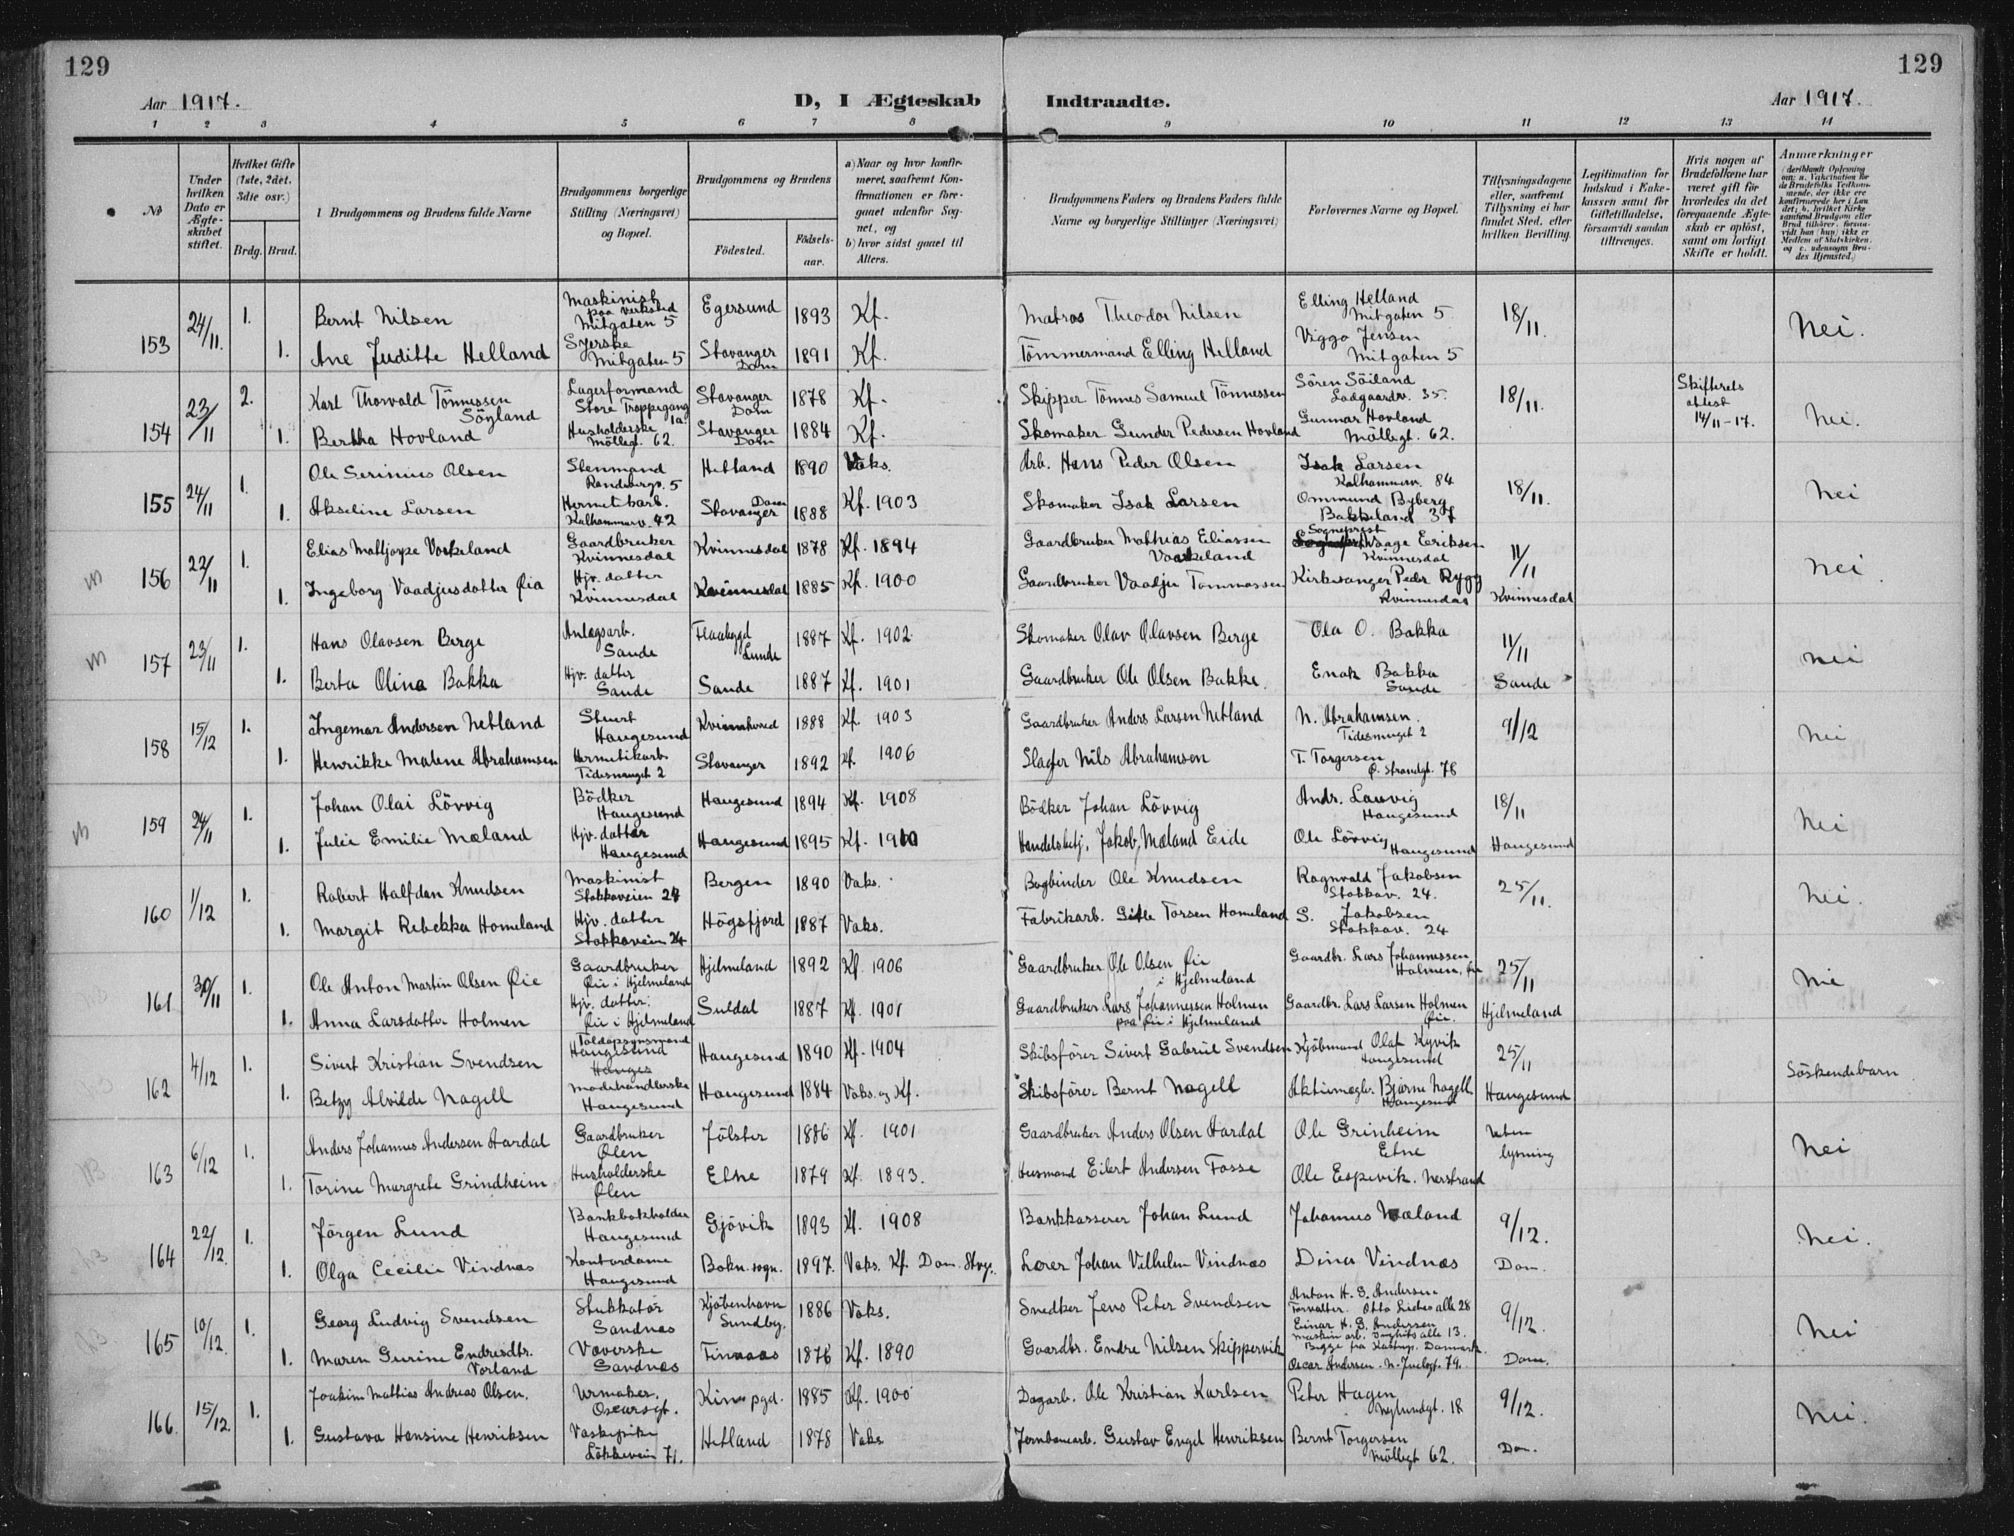 129
129
Aar 1917.
D, I Ægteskab Indtraadte.
Aar 1917.
1 2 3 4 5 6 7 8 9 10 11 12 13 14
No
Under hvilken Dato er Ægteskabet stiftet.
Hvilket Gifte (1ste, 2det, 3die osv.)
Brdg. Brud.
1 Brudgommens og Brudens fulde Navne
Brudgommens borgerlige Stilling (Næringsvei) og Bopæl.
Brudgommens og Brudens
Fødested.
Fødselsaar.
a) Naar og hvor konfirmeret, saafremt Konfirmationen er foregaaet udenfor Sognet, og
b) hvor sidst gaaet til Alters.
Brudgommens Faders og Brudens Faders fulde Navne og borgerlige Stillinger (Næringsvei)
Forlovernes Navne og Bopæl.
Tillysningsdagene eller, saafremt Tillysning ei har fundet Sted, efter hvilken Bevilling.
Legitimation for Indskud i Enkekassen samt for Giftetilladelse, forsaavidt saadan tiltrænges.
Hvis nogen af Brudefolkene har været gift før hvorledes da det foregaaende Ægteskab er opløst, samt om lovligt Skifte er holdt.
Anmærkninger
153 24/11. 1. Bernt Nilsen Maskinist paa verksted Mitgaten 5 Egersund 1893 Kf. Matros Theodor Nilsen Elling Helland Mitgaten 5 18/11. Nei.
1. Ane Juditte Helland Syerske Mitgaten 5 Stavanger Dom 1891 Kf. Tømmermand Elling Helland Viggo Jensen Mitgaten 5
154 23/11 2. Karl Thorvald Tönnessen Söyland Lagerformand Store Trappegang 1a. Stavanger Dom 1878 Kf. Skipper Tönnes Samuel Tönnessen Sören Söiland Ladgaardv. 35. 18/11. Skifterets attest 14/11-17. Nei.
1. Bertha Hovland Husholderske Möllegt. 62. Stavanger Dom 1884 Kf. Skomaker Gunder Pedersen Hovland Gunnar Hovland Möllegt. 62.
155 24/11 1. Ole Serinius Olsen Stenmand Randabergv. 5 Hetland 1890 Vaks. Arb. Hans Peder Olsen Isak Larsen Kalhammerv. 84 18/11. Nei
1. Akseline Larsen Hermetikarb. Kalhammerv. 42 Stavanger Dom 1888 Kf. 1903 Skomaker Isak Larsen Ommund Byberg Bakkeland 37
156 22/11 1. Elias Mattjorpe Vorkeland Gaardbruker Kvinnesdal Kvinnesdal 1878 Kf. 1894 Gaardbruker Mathias Eliassen Sogneprest Vaage Eriksen Kvinnesdal 11/11 Nei.
1. Ingeborg Vaadjusdatter Øia Hjv. datter Kvinnesdal Kvinnesdal 1885 Kf. 1900 Gaardbruker Vaadju Tommassen Kirkesanger Peder Rygg Kvinnesdal Kvinnesdal
157 23/11 1. Hans Olavsen Berge Anlegsarb. Sande Flaabygd Lunde 1887 Kf. 1902. Skomaker Olav Olavsen Berge Ola O. Bakka 11/11 Nei
1. Berta Olina Bakka Hjv. datter Sande Sande 1887 Kf. 1901 Gaardbruker Ole Olsen Bakke. Enok Bakka Sande Sande
158 15/12 1. Ingemar Andersen Netland Stuert Haugesund Kvinnherred 1888 Kf. 1903 Gaardbruker Anders Larsen Netland N. Abrahamsen. Tidesmuget 2 9/12 Nei
1. Henrikke Malene Abrahamsen Hermetikarb. Tidesmuget 2 Stavanger 1892 Kf. 1906 Slagter Nils Abrahamsen T. Torgersen Ø. Strandgt. 78
159 24/11 1. Johan Olai Lövvig Bödker Haugesund Haugesund 1894 Kf. 1908 Bödker Johan Lövvig Andr. Lauvig Haugesund 18/11 Nei
1. Julie Emilie Mæland Hjv. datter Haugesund Haugesund 1895 Kf. 1910 Handelsbetj. Jakob Mæland Eide Ole Lövvig Haugesund Haugesund
160 1/12 1. Robert Halfdan Knudsen Maskinist Stokkaveien 24 Bergen 1890 Vaks. Bogbinder Ole Knudsen Ragnvald Jakobsen Stokkav. 24. 25/11. Nei.
1. Margit Rebekka Homeland Hjv. datter Stokkaveien 24 Högsfjord 1887 Vaks. Fabrikarb. Gitle Torsen Homeland S. Jakobsen Stokkav. 24
161 30/11 1. Ole Anton Martin Olsen Øie Gaardbruker Øie i Hjelmeland Hjelmeland 1892 Kf. 1906 Gaardbruker Ole Olsen Øie i Hjelmeland Gaardbr. Lars Johannessen Holmen, Øie 25/11 Nei
1. Anna Larsdatter Holmen Hjv. datter. Øie i Hjelmeland Suldal 1887 Kf. 1901 Gaardbruker Lars Johannessen Holmen paa Øie i Hjelmeland Gaardbr. Lars Larsen Holmen Øie. Hjelmeland
162 4/12 1. Sivert Kristian Svendsen Toldopsynsmand Haugesund Haugesund 1890 Kf. 1904 Skibsfører Sivert Gabriel Svendsen Kjøbmand Olaf Kyvik Haugesund 25/11 Söskendebarn
1. Betzy Alvilde Nagell Modehandlerske Haugesund Haugesund 1884 Vaks. og Kf. Skibsfører Bernt Nagell Aktiemegler Bjarne Nagell Haugesund Haugesund
163 6/12 1. Anders Johannes Andersen Aardal Gaardbruker Ølen Jölster 1886 Kf. 1901 Gaardbruker Anders Olsen Aardal Ole Grinheim Etne Uten lysning Nei
1. Torine Margrete Grindheim Husholderske Ølen Etne 1879 Kf. 1893. Husmand Eilert Andersen Fosse Ole Espevik. Nerstrand
164 22/12. 1. Jörgen Lund Bankbokholder Haugesund Gjövik 1893 Kf. 1908 Bankkasserer Johan Lund Johannes Mæland 9/12. Nei.
1. Olga Cecilie Vindnæs Kontordame Haugesund Bokn. sogn. 1897. Vaks. Kf. Dom. Stvgr. Lærer Johan Vilhelm Vindnæs Dina Vindnæs Dom.
165 10/12. 1. Georg Ludvig Svendsen Stukkatör Sandnæs Kjöbenhavn Sundby. 1886 Vaks. Snedker Jens Peter Svendsen Anton H. S. Andersen Forvalter. Otto Lichts alle 28 Einar H. S. Andersen Maskin arb. alle 13. Begge fra Kastrup. Danmark. 9/12. Nei
1. Maren Gurine Endresdtr. Vorland Væverske Sandnæs Finnaas 1876 Kf. 1890 Gaardbr. Endre Nilsen Skippervik Oscar Andersen. N. Juelsgt. 74. Dom.
166. 15/12. 1. Joakim Mathias Andreas Olsen. Urmaker. Oscarsgt. Kinn pgd. 1885 Kf. 1900 Dagarb. Ole Kristian Karlsen Peter Hagen Nylundgt. 18 9/12. Nei.
1. Gustava Hansine Henriksen Vaskepike Lökkevein 71. Hetland 1878 Vaks Jernbanearb. Gustav Engel Henriksen Bernt Torgersen Möllegt 62. Dom.